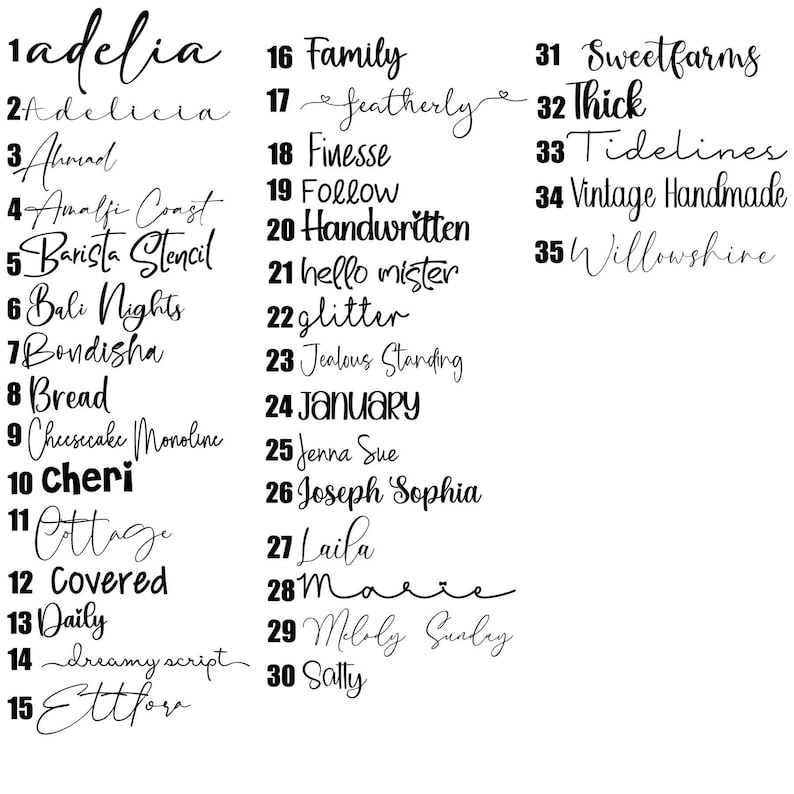 1 adelia
2 Adelicia
3 Ahmad
4 Amalfi Coast
5 Barista Stencil
6 Bali Nights
7 Bondisha
8 Bread
9 Cheesecake Monoline
10 Cheri
11 Cottage
12 Covered
13 Daily
14 dreamy script
15 Ettfora
16 Family
17 featherly
18 Finesse
19 Follow
20 Handwritten
21 hello mister
22 glitter
23 Jealous Standing
24 JANUARY
25 Jenna Sue
26 Joseph Sophia
27 Laila
28 Marie
29 Melody Sunday
30 Salty
31 Sweetfarms
32 Thick
33 Tidelines
34 Vintage Handmade
35 Willowshire